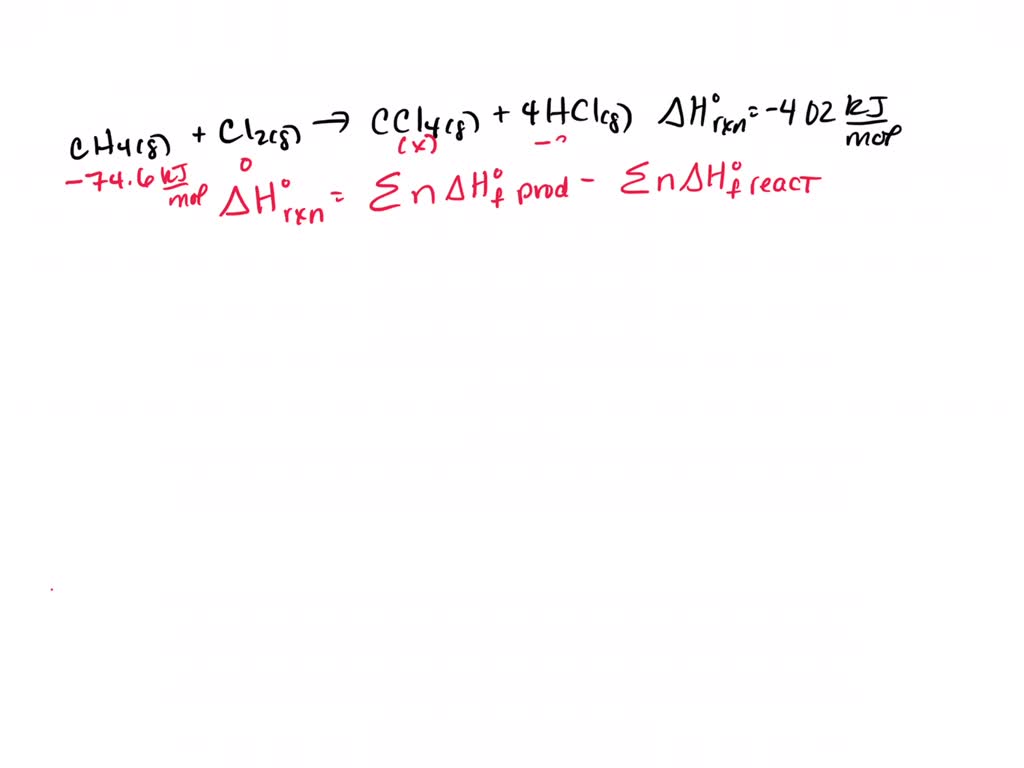 CH₄(g) + Cl₂(g) → CCl₄(g) + 4HCl(g) ΔH°rxn = -402 kJ/mol
-74.6 kJ/mol 0 (x)
ΔH°rxn = Σn ΔH°f prod - Σn ΔH°f react